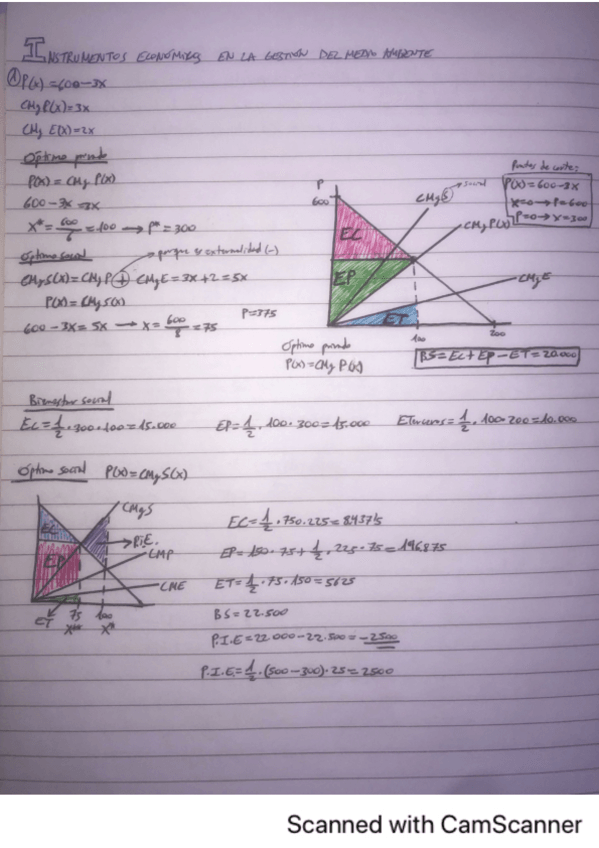 INSTRUMENTOS ECONÓMICOS EN LA GESTIÓN DEL MEDIO AMBIENTE
① P(x) = 600 - 3x
CMgP(x) = 3x
CMg E(x) = 2x
Óptimo privado
P(x) = CMg P(x)
600 - 3x = 3x
x* = 600/6 = 100 → P* = 300
Óptimo social
porque es externalidad (-)
CMgS(x) = CMgP + CMgE = 3x + 2 = 5x
P(x) = CMgS(x)
600 - 3x = 5x → x = 600/8 = 75 P = 375
Puntos de corte:
P(x) = 600 - 3x
x=0 → P=600
P=0 → x=300
P
600
CMgS social
CMgP(x)
CMgE
EC
EP
ET
100
200
Óptimo privado
P(x) = CMg P(x)
BS = EC + EP - ET = 20.000
Bienestar social
EC = 1/2 · 300 · 100 = 15.000 EP = 1/2 · 100 · 300 = 15.000 ETerceros = 1/2 · 100 · 200 = 10.000
Óptimo social P(x) = CMgS(x)
CMgS
P.I.E.
CMP
CME
EC
EP
ET
75
100
X**
X*
EC = 1/2 · 750 · 225 = 8437'5
EP = 150 · 75 + 1/2 · 225 · 75 = 196875
ET = 1/2 · 75 · 150 = 5625
BS = 22.500
P.I.E = 22.000 - 22.500 = -2500
P.I.E = 1/2 · (500 - 300) · 25 = 2500
Scanned with CamScanner